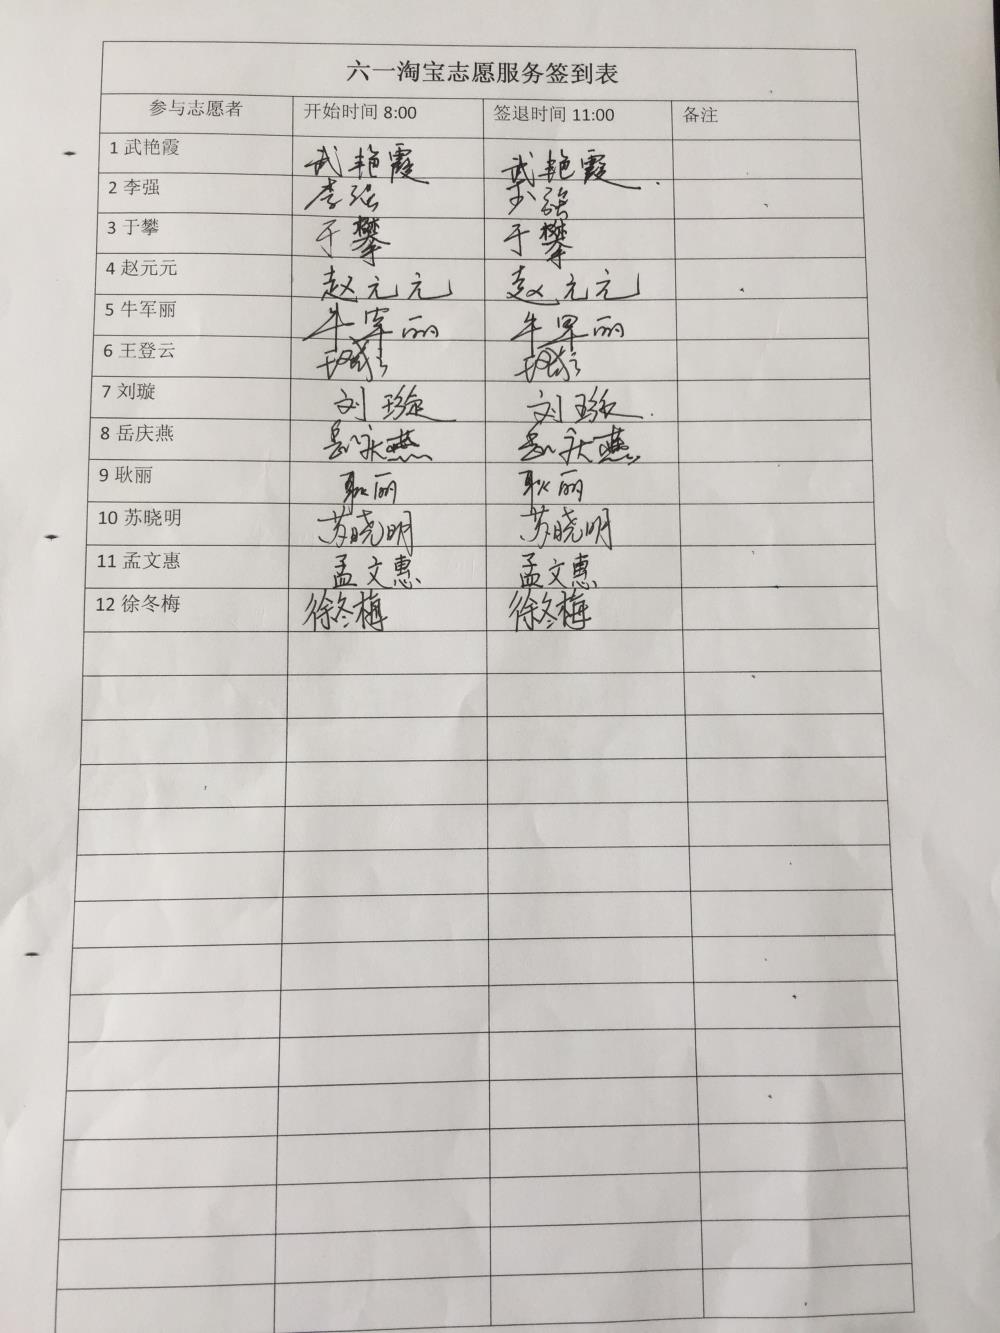 六一淘宝志愿服务签到表
参与志愿者 开始时间 8:00 签退时间 11:00 备注
1 武艳霞 武艳霞 武艳霞
2 李强 李强 李强
3 于攀 于攀 于攀
4 赵元元 赵元元 赵元元
5 牛军丽 牛军丽 牛军丽
6 王登云 王登云 王登云
7 刘璇 刘璇 刘璇
8 岳庆燕 岳庆燕 岳庆燕
9 耿丽 耿丽 耿丽
10 苏晓明 苏晓明 苏晓明
11 孟文惠 孟文惠 孟文惠
12 徐冬梅 徐冬梅 徐冬梅